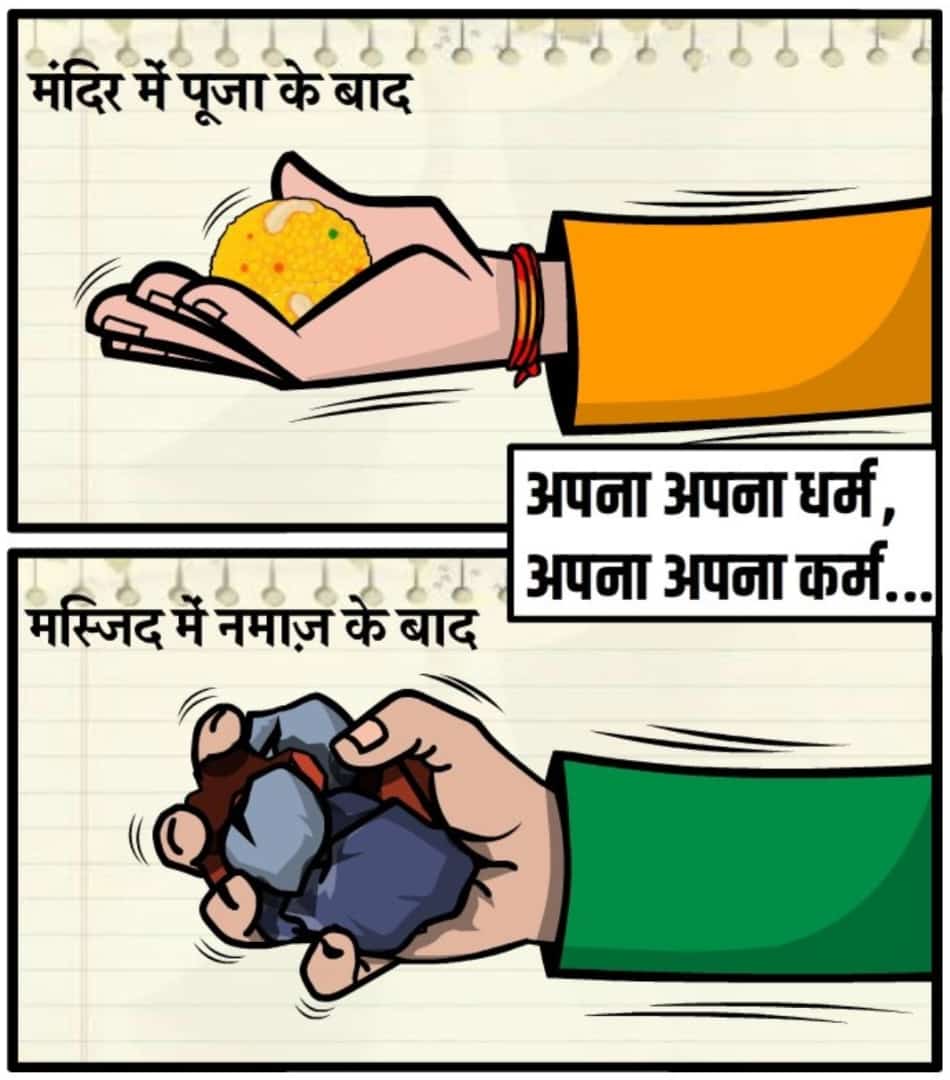 मंदिर में पूजा के बाद
अपना अपना धर्म,
अपना अपना कर्म...
मस्जिद में नमाज़ के बाद